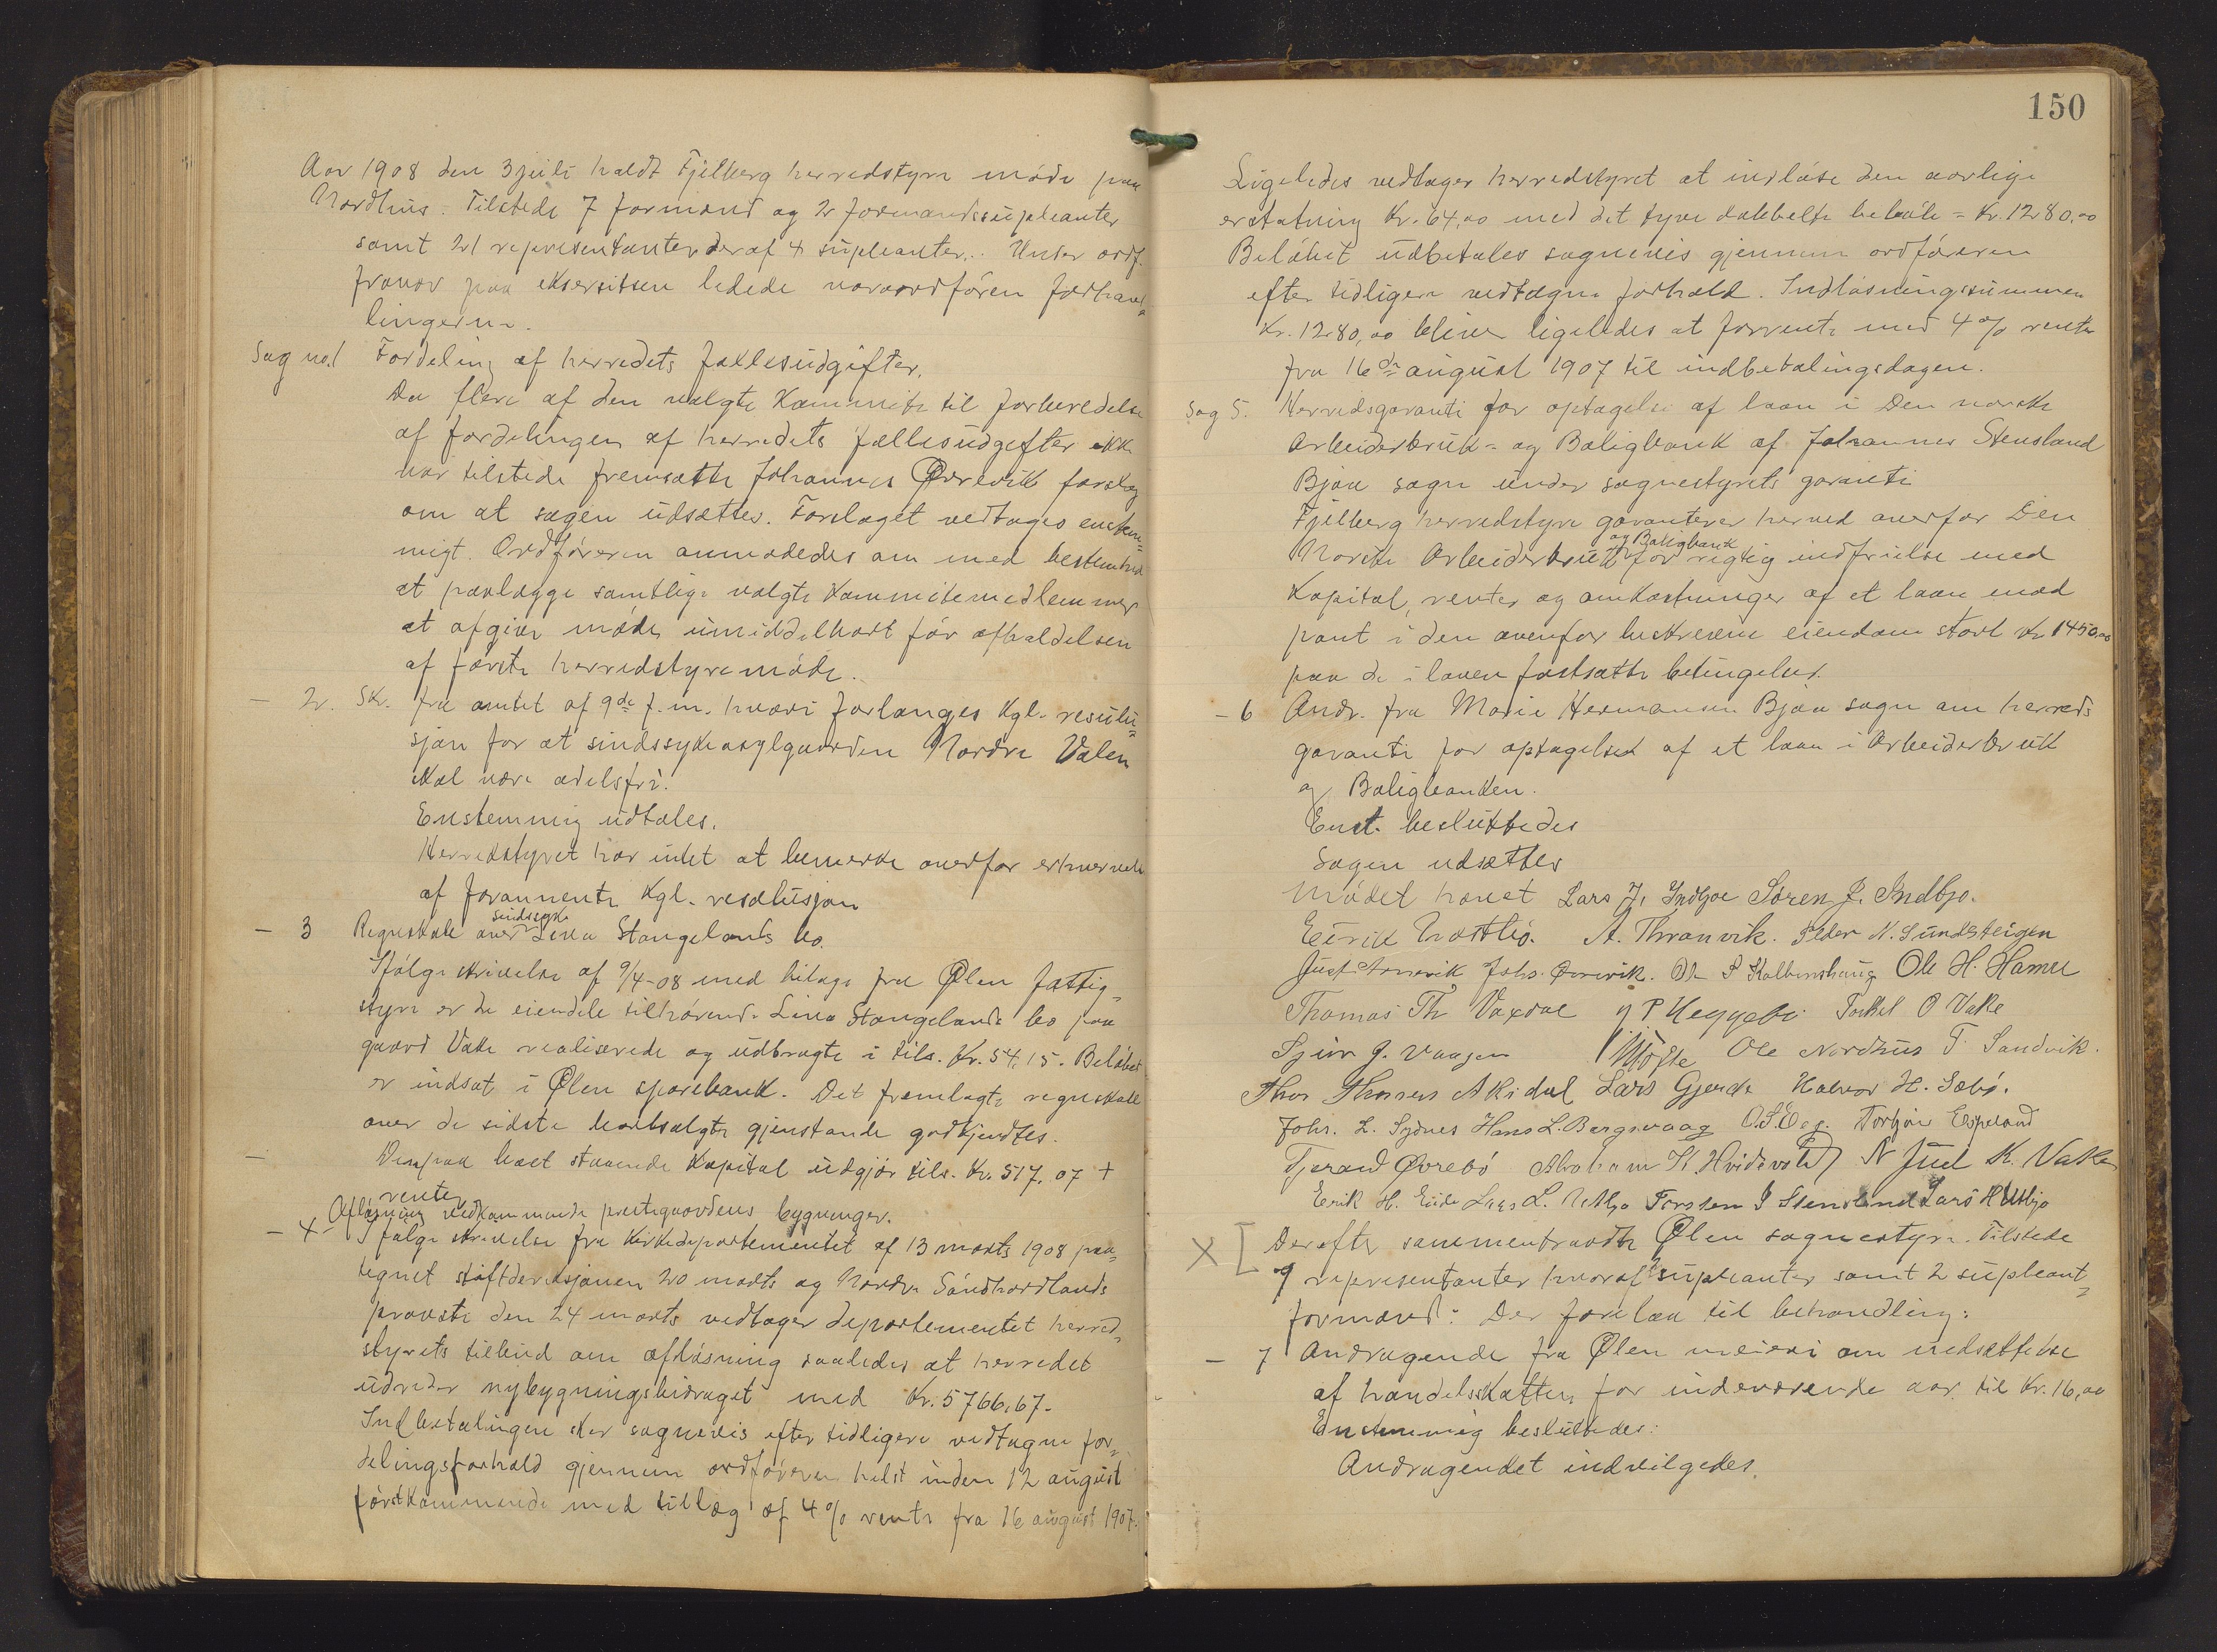 Aar 1908 den 3 juli holdt Fjelberg herredstyre møde paa
Nordhus. Tilstede 7 formænd og 2 formandssupleanter
samt 21 representanter deraf 4 supleanter. Under ordf.
fravær paa eksersitsen ledede varaordføren forhand=
lingerne.
Sag no. 1 Fordeling af herredets fællesudgifter.
Da flere af den valgte Kommite til forberedelse
af fordelingen af herredets fællesudgifter ikke
var tilstede fremsatte Johannes Øvrevik forslag
om at sagen udsættes. Forslaget vedtages enstem=
migt. Ordføreren anmodedes om med bestemthed
at paalægge samtlige valgte Kommitemedlemmer
at afgive møde umiddelbart før afholdelsen
af første herredstyremøde.
- 2. Skr. fra amtet af 9de f. m. hvori forlanges Kgl. resulu=
sjon for at sindssykeasylgaarden Nordre Valen
skal være odelsfri.
Enstemmig udtales.
Herredstyret har intet at bemerke overfor erhvervelse
af forannevnte Kgl. resolusjon
- 3 Regnskab over sindssyke Lina Stangelands bo.
Ifølge skrivelse af 9/4-08 med bilage fra Ølen fattig=
styre er de eiendele tilhørende Lina Stangelands bo paa
gaard Vake realiserede og udbragte i tils. Kr. 54,15. Beløbet
er indsat i Ølen sparebank. Det fremlagte regnskab
over de sidste bortsolgte gjenstande godkjendtes.
- Den paa boet staaende Kapital udgjør tils. Kr. 517.07 +
renter
Afløsning vedkommende prestegaardens bygninger.
- 4 - Ifølge skrivelse fra Kirkedepartementet af 13 marts 1908 paa=
tegnet stiftdireksjonen 20 marts og Nordre Søndhordlands
provsti den 24 marts vedtager departementet herred=
styrets tilbud om afløsning saaledes at herredet
udreder nybygningsbidraget med Kr. 5766,67.
Indbetalingen sker sognevis efter tidligere vedtagne for=
delingsforhold gjennem ordføreren helst inden 12 august
førstkommende med tillæg af 4 % rente fra 16 august 1907.
150
Ligeledes vedtager herredstyret at indløse den aarlige
erstatning Kr. 64,00 med det tyve dobbelte beløb = Kr. 1280,00
Beløbet udbetales sognevis gjennem ordføreren
efter tidligere vedtagne forhold. Indløsningssummen
Kr. 1280,00 bliver ligeledes at forrente med 4 % rente
fra 16de august 1907 til indbetalingsdagen.
Sag 5. Herredsgaranti for optagelse af laan i Den norske
Arbeiderbruk- og Boligbank af Johannes Stensland
Bjoa sogn under sognestyrets garanti
Fjelberg herredstyre garanterer herved overfor Den
Norske Arbeiderbruk og Boligbank for rigtig indfrielse med
Kapital, renter og omkostninger af et laan mod
pant i den ovenfor beskrevne eiendom stort Kr 1450,00
paa de i loven fastsatte betingelser.
- 6 Andr. fra Marie Hermansen Bjoa sogn om herreds
garanti for optagelse af et laan i Arbeiderbruk
og Boligbanken.
Enst. besluttedes
Sagen udsættes
Mødet hævet Lars J. Indbjoe Søren J. Indbjo.
Eirik A. Thranvik. Peder N. Sundsteigen
Johs. Øvrevik. Ole P Kolbenshaug Ole H. Hamre
Thomas Th Vaxdal P Heggebø Torkel O Vake
Sjur J. Vaagen Ole Nordhus T. Sandvik.
Thor Thorsen Akidal Lars Gjerde Halvor H. Sæbø.
Johs. L. Sydnes Hans L. Bergsvaag O. S. Eeg. Torbjørn Espeland
Tjerand Øvrebø Abraham K. Hvidevold N Juel K. Vake
Erik H. Eide Lars L. Utbjo Torsten J Stensland Lars H Utbjo
X [ Derefter sammentraadte Ølen sognestyre. Tilstede
9 representanter hvoraf 2 supleanter samt 2 supleant=
formænd: Der forelaa til behandling:
- 7 Andragende fra Ølen meieri om nedsættelse
af handelsskatten for indeværende aar til Kr. 16,00
Enstemmig besluttedes:
Andragendet indvilgedes.